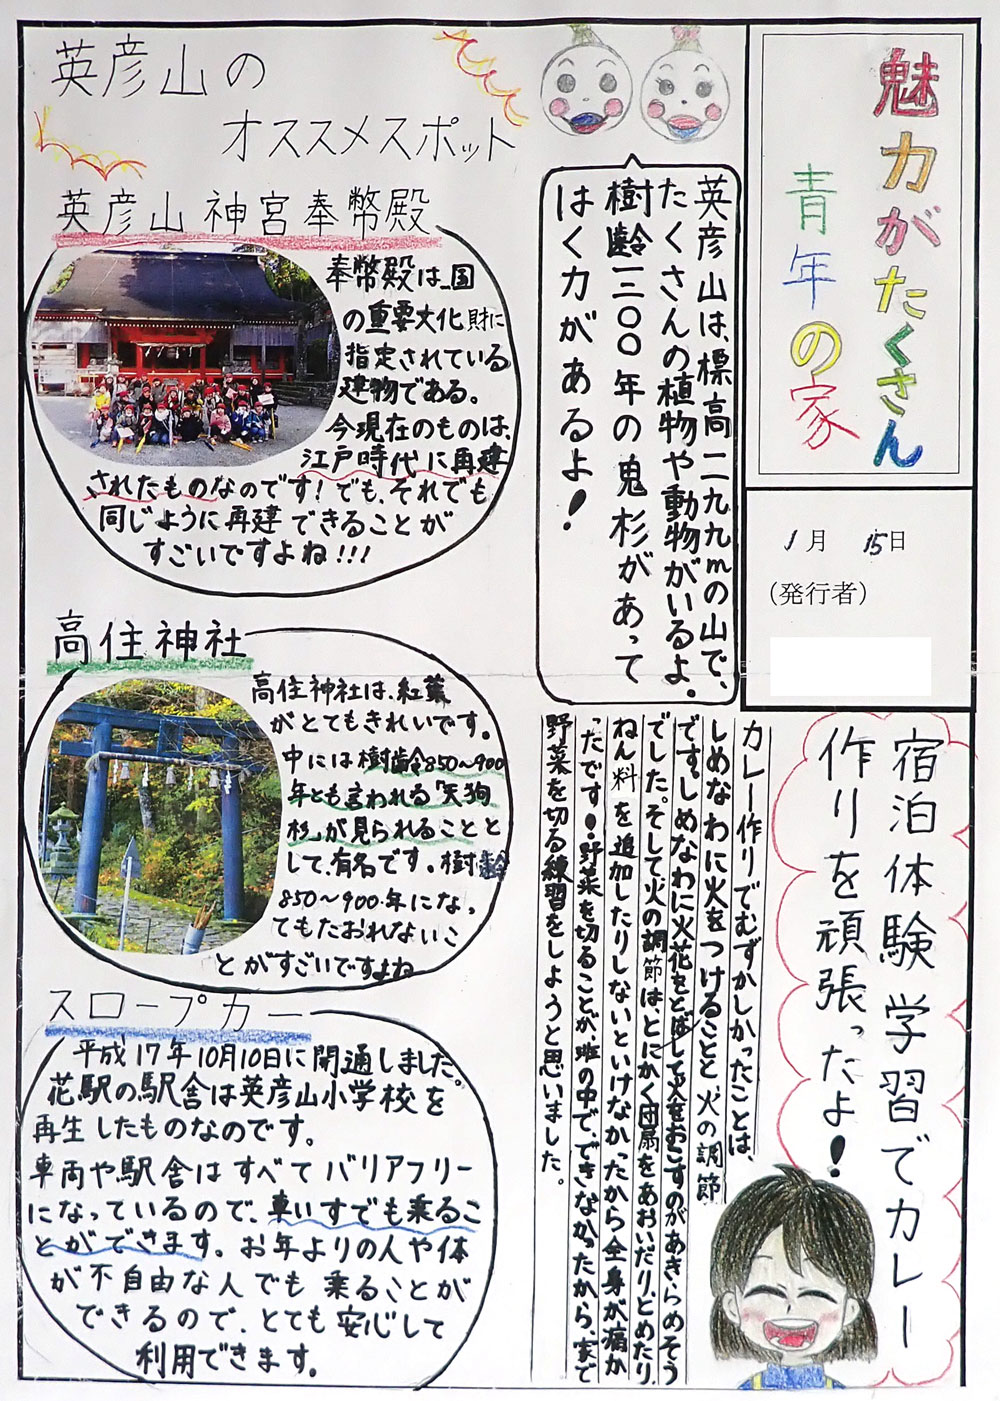 魅力がたくさん
青年の家
1月 15日
(発行者)
英彦山は、標高一一九九mの山で、
たくさんの植物や動物がいるよ。
樹齢一二〇〇年の鬼杉があって
はく力があるよ!
英彦山の
オススメスポット
英彦山神宮奉幣殿
奉幣殿は、国
の重要文化財に
指定されている
建物である。
今現在のものは、
江戸時代に再建
されたものなのです!でも、それでも
同じように再建できることが
すごいですよね!!!
高住神社
高住神社は、紅葉
がとてもきれいです。
中には樹齢850～900
年とも言われる「天狗
杉」が見られることと
して、有名です。樹齢
850～900年になっ
てもたおれないこ
とがすごいですよね
スロープカー
平成17年10月10日に開通しました。
花駅の駅舎は英彦山小学校を
再生したものなのです。
車両や駅舎はすべてバリアフリー
になっているので、車いすでも乗るこ
とができます。お年よりの人や体
が不自由な人でも乗ることが
できるので、とても安心して
利用できます。
宿泊体験学習でカレー
作りを頑張ったよ!
カレー作りでむずかしかったことは、
しめなわに火をつけることと、火の調節
です。しめなわに火花をとばして火をおこすのがあきらめそう
でした。そして、火の調節は、とにかく団扇をあおいだり、とめたり、
ねん料を追加したりしないといけなかったから全身が痛か
ったです!野菜を切ることが、班の中で、できなかったから、家で
野菜を切る練習をしようと思いました。